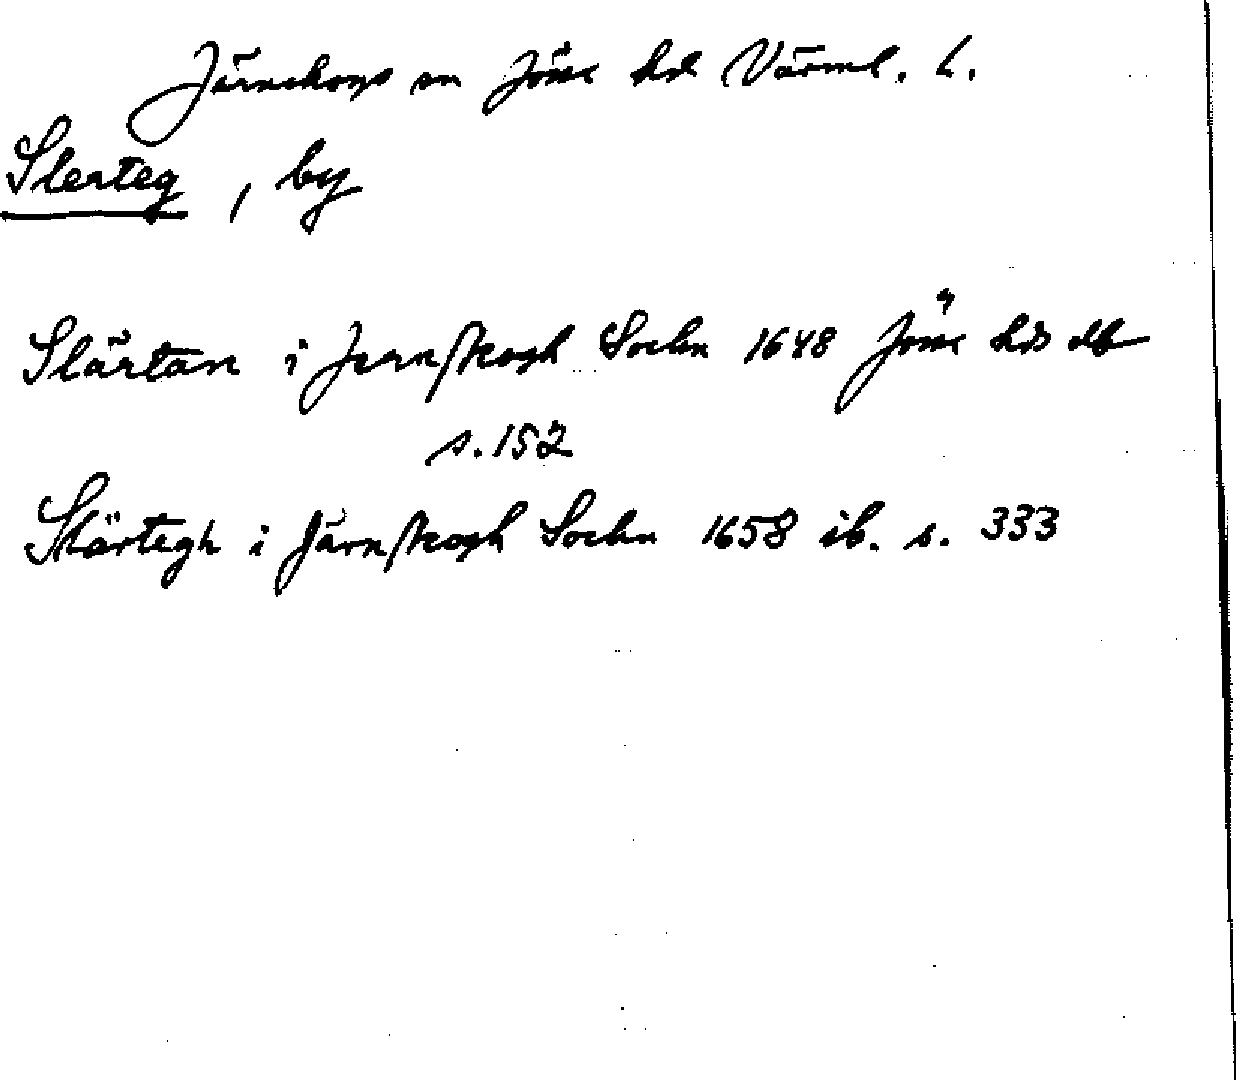 Järnskogs sn Jösse hd Värml. l.
Slerteg, by
Slärtan i Jernskogh Sochn 1648 Jösse hds db
s. 152
Slärtegh i Järnskogh Sochn 1658 ib. s. 333